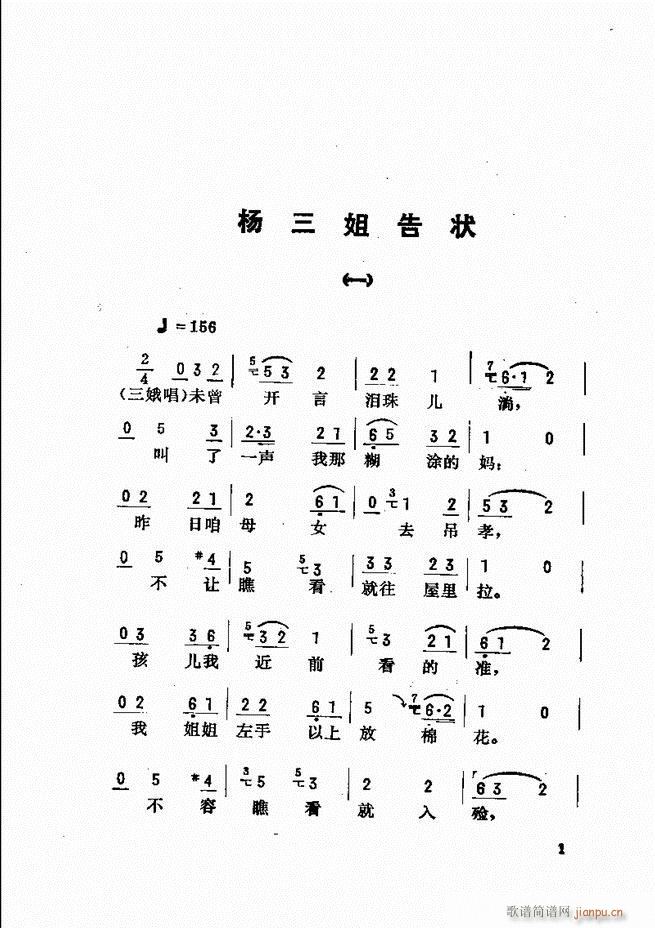 杨三姐告状
(一)
♩=156
2/4 0 3 2 | 5 5 3 2 | 2 2 1 | 7 6·1 2 |
(三娥唱)未曾 开 言 泪珠儿 淌,
0 5 3 | 2·3 2 1 | 6 5 3 2 | 1 0
叫 了 一声 我那 糊 涂的 妈;
0 2 2 1 | 2 6 1 | 0 3 1 2 | 5 3 2 |
昨 日咱 母 女 去 吊 孝,
0 5 #4 | 5 5 3 | 3 3 2 3 | 1 0
不 让 瞧 看 就往 屋里 拉。
0 3 3 6 | 5 3 2 1 | 5 3 2 1 | 6 1 2 |
孩 儿我 近 前 看 的 准,
0 2 6 1 | 2 2 6 1 | 5 7 6·2 | 1 0
我 姐姐 左手 以上 放 棉 花。
0 5 #4 | 3 5 5 3 | 2 2 | 6 3 2 |
不 容 瞧 看 就 入 殓,
1
歌谱简谱网 jianpu.cn